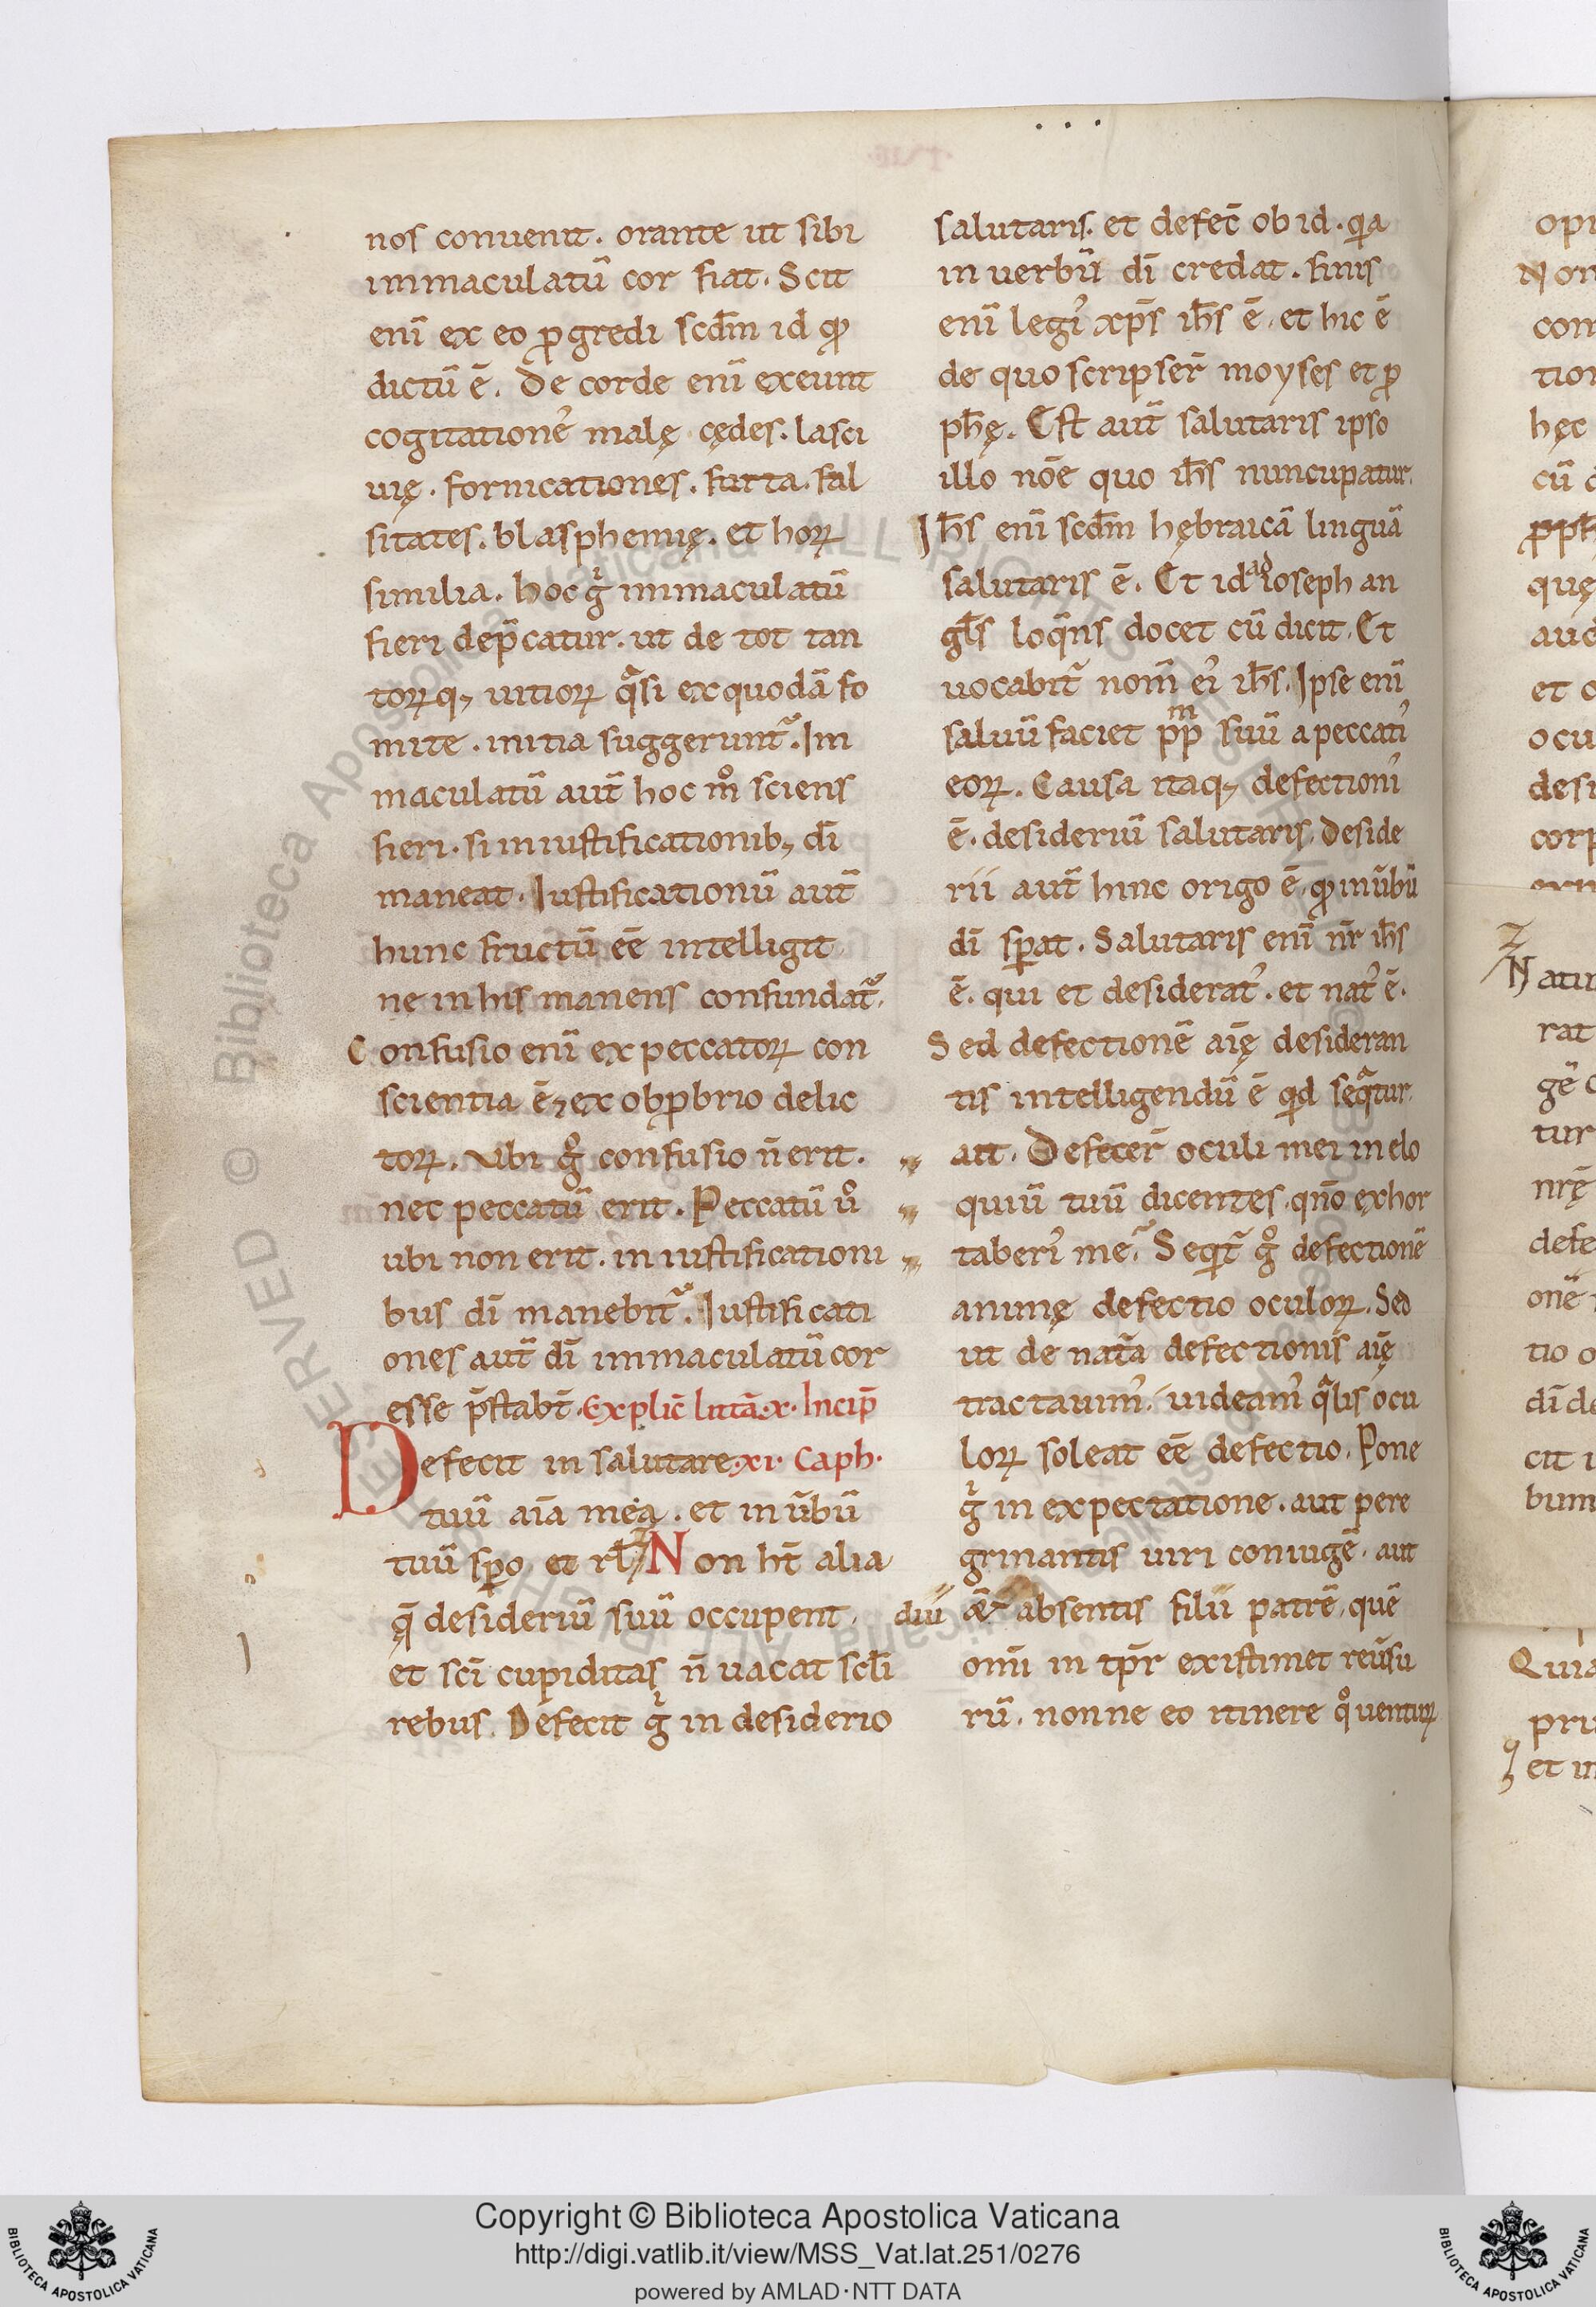 nos conuenit. orante ut sibi
immaculatū cor fiat. Scit
enī ex eo ꝓgredi scd̄m id qđ
dictū ē. De corde enī exeunt
cogitationeˀ malę cędes. lasci
uię. fornicationes. furta. fal
sitates. blasphemię. et hoꝝ
similia. hoc gͥ immaculatū
fieri dep̄catur. ut de tot tan
toꝝq; uitioꝝ qͣsi ex quodā fo
mite. initia suggerunt̃. Im
maculatū aut̄ hoc mͦ sciens
fieri. si in iustificationib; dī
maneat. Iustificationū aut̄
hunc fructū eē intelligit
ne in his manens confundat̃.
Confusio enī ex peccatoꝝ con
scientia ē, ⁊ ex obꝓbrio delic
toꝝ. Ubi gͦ confusio n̄ erit.
nec peccatū erit. Peccatū uͦ
ubi non erit. in iustificationi
bus dī manebit̃. Iustificati
ones aut̄ dī immaculatū cor
esse p̄stabt̄. Explic̄ littā.x. Incip̄
Defecit in salutare .xi. Caph.
tuū aīa mea. et in ūbū
tuū sꝑo et rł. Non ht̄ alia
q̄ desideriū suū occupent.
et scī cupiditas n̄ uacat scl̄i
rebus. Defecit gͥ in desiderio
salutaris. et defec̄ ob id. qꝛa
in uerbū dī credat. finis
enī legiˀ xp̄s ih̄s ē. et hic ē
de quo scripser̄ moyses et ꝓ
ph̄ę. Est aut̄ salutaris ipso
illo nōe quo ih̄s nuncupatur.
Ih̄s enī scd̄m hębraicā linguā
salutaris ē. Et id ad ioseph an
gl̄s loq̄ns docet cū dicit. Et
uocabit̃ nom̄ eiˀ ih̄s. Ipse enī
saluū faciet pp̄m suū a peccatiˀ
eoꝝ. Causa itaq; defectioniˀ
ē. desideriū salutaris. Deside
rii aut̄ hinc origo ē. qđ in ūbū
dī sꝑat. Salutaris enī nr̄ ih̄s
ē. qui et desideratˀ. et natˀ ē.
Sed defectionē aīę desideran
tis intelligendū ē qđ seqͣtur.
ait. Defecer̄ oculi mei in elo
quiū tuū dicentes. qn̄o exhor
taberiˀ me. Seqͥt̃ gͦ defectionē
animę defectio oculoꝝ. Sed
ut de nat̄a defectionis aīę
tractauimˀ. uideamˀ qͣlis ocu
loꝝ soleat eē defectio. Pone
gͥ in expectatione. aut pere
grinantis uiri coniugē. aut
diu absentis filii patrē. quē
omī in tp̄r existimet reūsu
rū. nonne eo itinere qͦ uentuꝝ